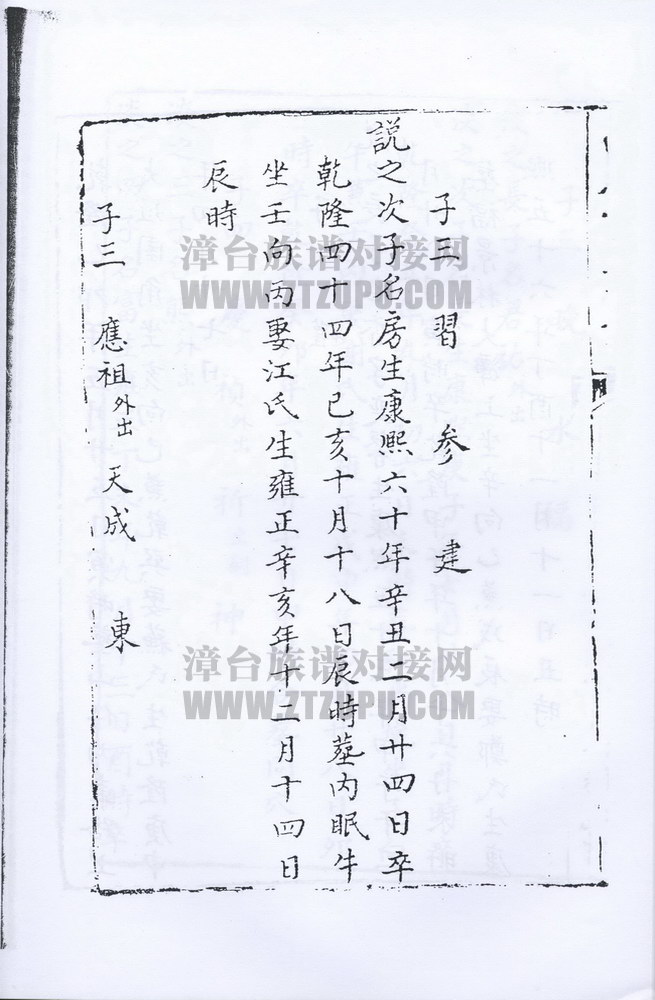 子三 習 参 建
説之次子名房生康熙六十年辛丑二月廿四日卒
乾隆四十四年己亥十月十八日辰時塟内眠牛
坐壬向丙娶江氏生雍正辛亥年十二月十四日
辰時
子三 應祖外出 天成 東
漳台族谱对接网
WWW.ZTZUPU.COM
漳台族谱对接网
WWW.ZTZUPU.COM